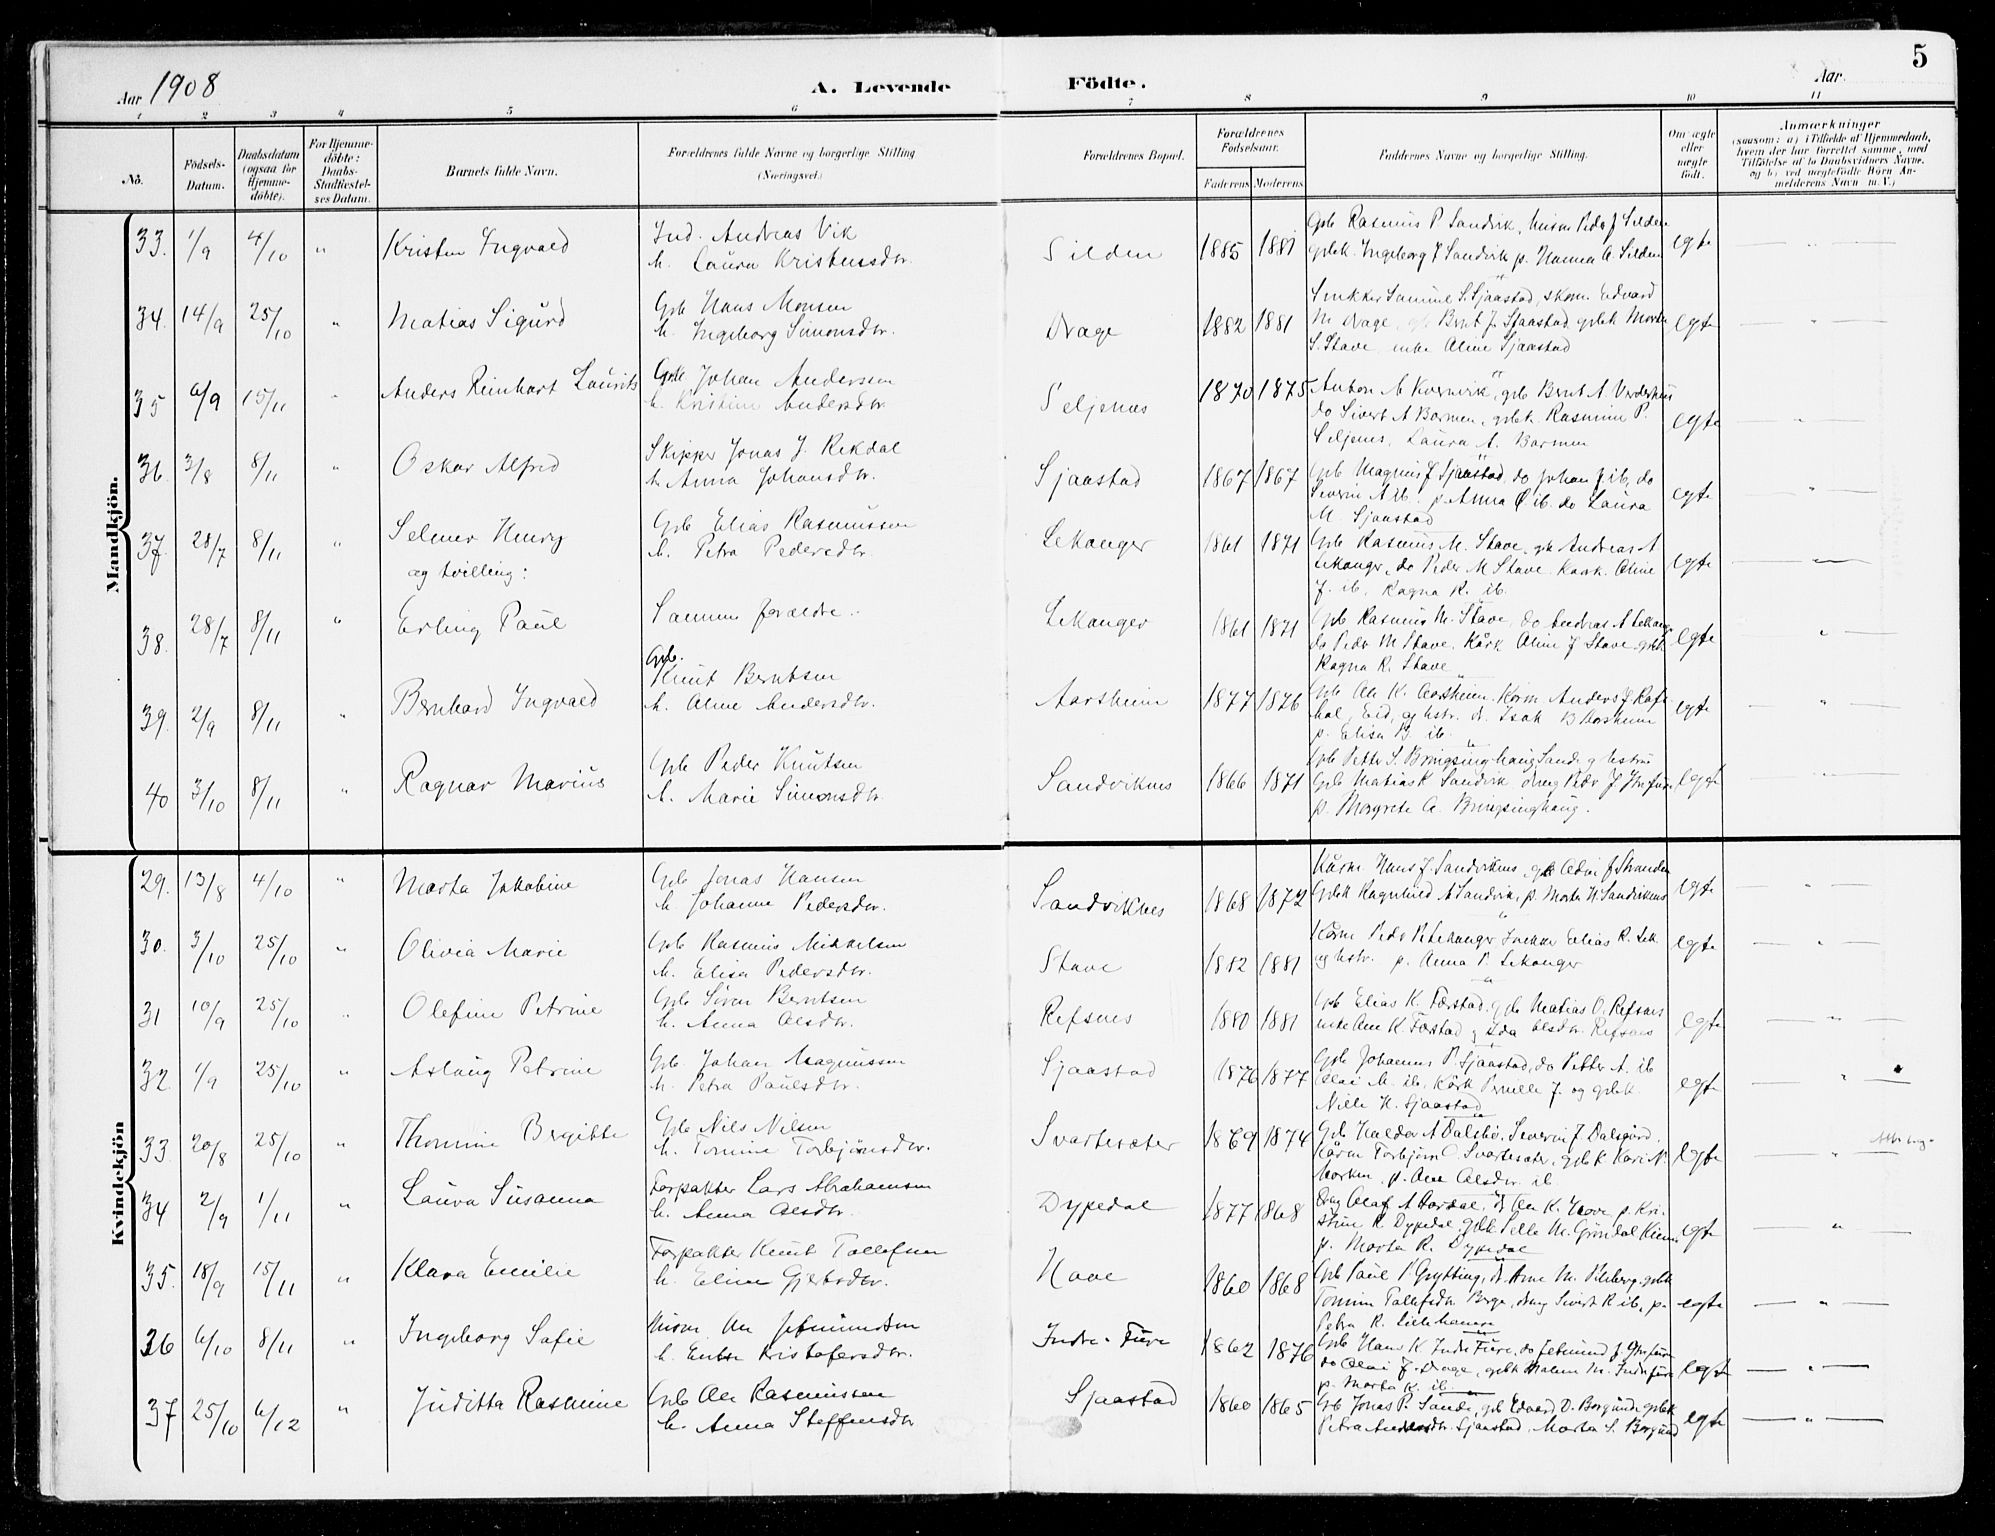 Aar 1908 A. Levende Födte. Aar. 5
1 2 3 4 5 6 7 8 9 10 11
No. Födsels-Datum. Daabsdatum (ogsaa for Hjemme-döbte). For Hjemme-döbte: Daabs-Stadfæstel-ses Datum. Barnets fulde Navn. Forældrenes fulde Navne og borgerlige Stilling (Næringsvei.) Forældrenes Bopæl. Forældrenes Fødselsaar. Faderens Moderens Faddernes Navne og borgerlige Stilling. Om ægte eller uægte født. Anmærkninger
(saasom: a) i Tilfælde af Hjemmedaab,
hvem der har forrettet samme, med
Tilføielse af to Daabsvidners Navne.
og b) ved uægtefödte Börn An-
melderens Navn m. V.)
Mandkjön.
33. 1/9 4/10 " Kristen Ingvald Ind. Andreas Vik
h. Laura Kristensdtr. Silden 1885 1881 Gbr Rasmus P Sandvik, Peder J Silden
gbrk. Ingeborg J Sandvik p. Hanna A. Silden egte — " —
34. 14/9 25/10 " Matias Sigurd Gbr Hans Monsen
h. Ingeborg Simonsdtr. Drage 1882 1881 Snekker Samuel S. Sjaastad, skom. Edvard
M Drage, Brnt J. Sjaastad gbrk Marta
S. Stave enke Aline Sjaastad egte — " —
35 6/9 15/11 " Anders Reinhart Laurits Gbr Johan Anderssen
h. Kristine Andersdtr. Seljenes 1870 1875 Anton A Kvernevik, gbr Bernt A
do Sivert A Barmen, gbrk. Rasmine P.
Seljenes, Laura A. Barmen egte — " —
36. 3/8 8/11 " Oskar Alfred Skipper Jonas J. Rekdal
h. Anna Johansdtr. Sjaastad 1867 1867 Gbr Magnus J Sjaastad, do Johan J. ib, do
Severin A ib. p. Anna Ø ib. do Laura
M. Sjaastad egte — " —
37. 28/7 8/11 " Selmer Henry
og tvilling: Gbr Elias Rasmussen
h. Petra Pedersdtr. Lekanger 1861 1871 Gbr Rasmus M. Stave, gbr Andreas A
Lekanger, do Peder M Stave Kaark. Aline
J. ib. Ragna R. ib. egte — " —
38. 28/7 8/11 " Erling Paul Samme forældre. Lekanger 1861 1871 Gbr Rasmus M. Stave, do Andreas A Lekanger
do Peder M Stave. Kårk Aline J Stave gbrk
Ragna R. Stave egte — " —
39. 2/9 8/11 " Bernhard Ingvald Gbr.
Knut Berntsen
h. Aline Andersdtr. Aarsheim 1877 1876 Gbr Ole K. Aarsheim. Kårm Anders J
Eid, og hstr. d. Isak B Aarsheim
p. Elisa B. ib. egte — " —
40 3/10 8/11 " Ragnar Marius Gbr Peder Knutsen
h. Marie Simonsdtr. Sandviknes 1866 1871 Gbr Petter S. Bringsinghaug Sande og hustru
Gbr Matias K Sandvik dreng Peder J
p. Margrete A. Bringsinghaug. egte — " —
Kvindekjön
29. 13/8 4/10 " Marta Jakobine Gbr Jonas Hansen
h. Johanne Pedersdtr. Sandviknes 1868 1872 Kårm Hans J. Sandviknes, gbr Adin J Stranden
Gbrk Ragnhild A Sandvik, p. Marta H. Sandviknes egte — " —
30. 3/10 25/10 " Olivia Marie Gbr Rasmus Mikkelsen
h. Elisa Pedersdtr. Stave 1882 1881 Kårm Peder P. Lekanger Snekker Elias R. Lek.
og hstr. p. Anna P. Lekanger egte — " —
31 10/9 25/10 " Olefine Petrine Gbr Sören Berntsen
h. Anna Olsdtr. Refsnes 1880 1881 Gbr Elias K. Færstad, gbr Matias O. Refsnes
enke Ane K. Færstad og Ida Olsdtr. Refsnes egte — " —
32. 1/9 25/10 " Aslaug Petrine Gbr Johan Magnussen
h. Petra Paulsdtr. Sjaastad 1876 1877 Gbr Johannes P. Sjaastad, do Petter A. ib
Olai M. ib, Kårk Pernelle J. og gbrk
Nille H. Sjaastad egte — " —
33. 20/8 25/10 " Thomine Bergitte Gbr Nils Nilsen
h. Tomine Torbjörnsdtr. Svartesæter 1869 1874 Gbr Haldor A Dalsbø, Severin J. Dalsgård.
Kårm Torbjörn O. Svartesæter, gbrk Kari N.
Morken p. Ane Olsdtr. ib. egte — " —
34 2/9 1/11 " Laura Susanna Forpakter Lars Abrahamsen
h. Anna Olsdtr. Dypedal 1877 1868 Dreng Olaf A Aardal, d. Ole K. Hove p. Kri-
stine R. Dypedal, gbrk Pelle M. Gjøndal
p. Marta R. Dypedal egte — " —
35. 18/9 15/11 " Klara Emilie Forpakter Knut Tollefsen
h. Eline Gjertsdtr. Hove 1860 1868 Gbr Paul P Grytting, d. Arne M. gbrk
Tomine Tollefsdtr Berge, dreng Sivert R ib, p.
Petra R. egte — " —
36 6/10 8/11 " Ingeborg Sofie Ole Jetmundsen
h. Kristofersdtr. Indre-Fure 1862 1876 Gbr Hans K Indre Fure, do Jetmund J.
do Olai J. Drage, gbrk Malene M. Indrefure
p. Marta K. ib. egte — " —
37 25/10 6/12 " Juditta Rasmine Gbr Ole Rasmussen
h. Anna Steffensdtr Sjaastad 1860 1865 Gbr Jonas P. Sande, gbr Edvard D. Borgund gbrk
Petra Andersdtr. Sjaastad, Marta S. Borgund egte — " —